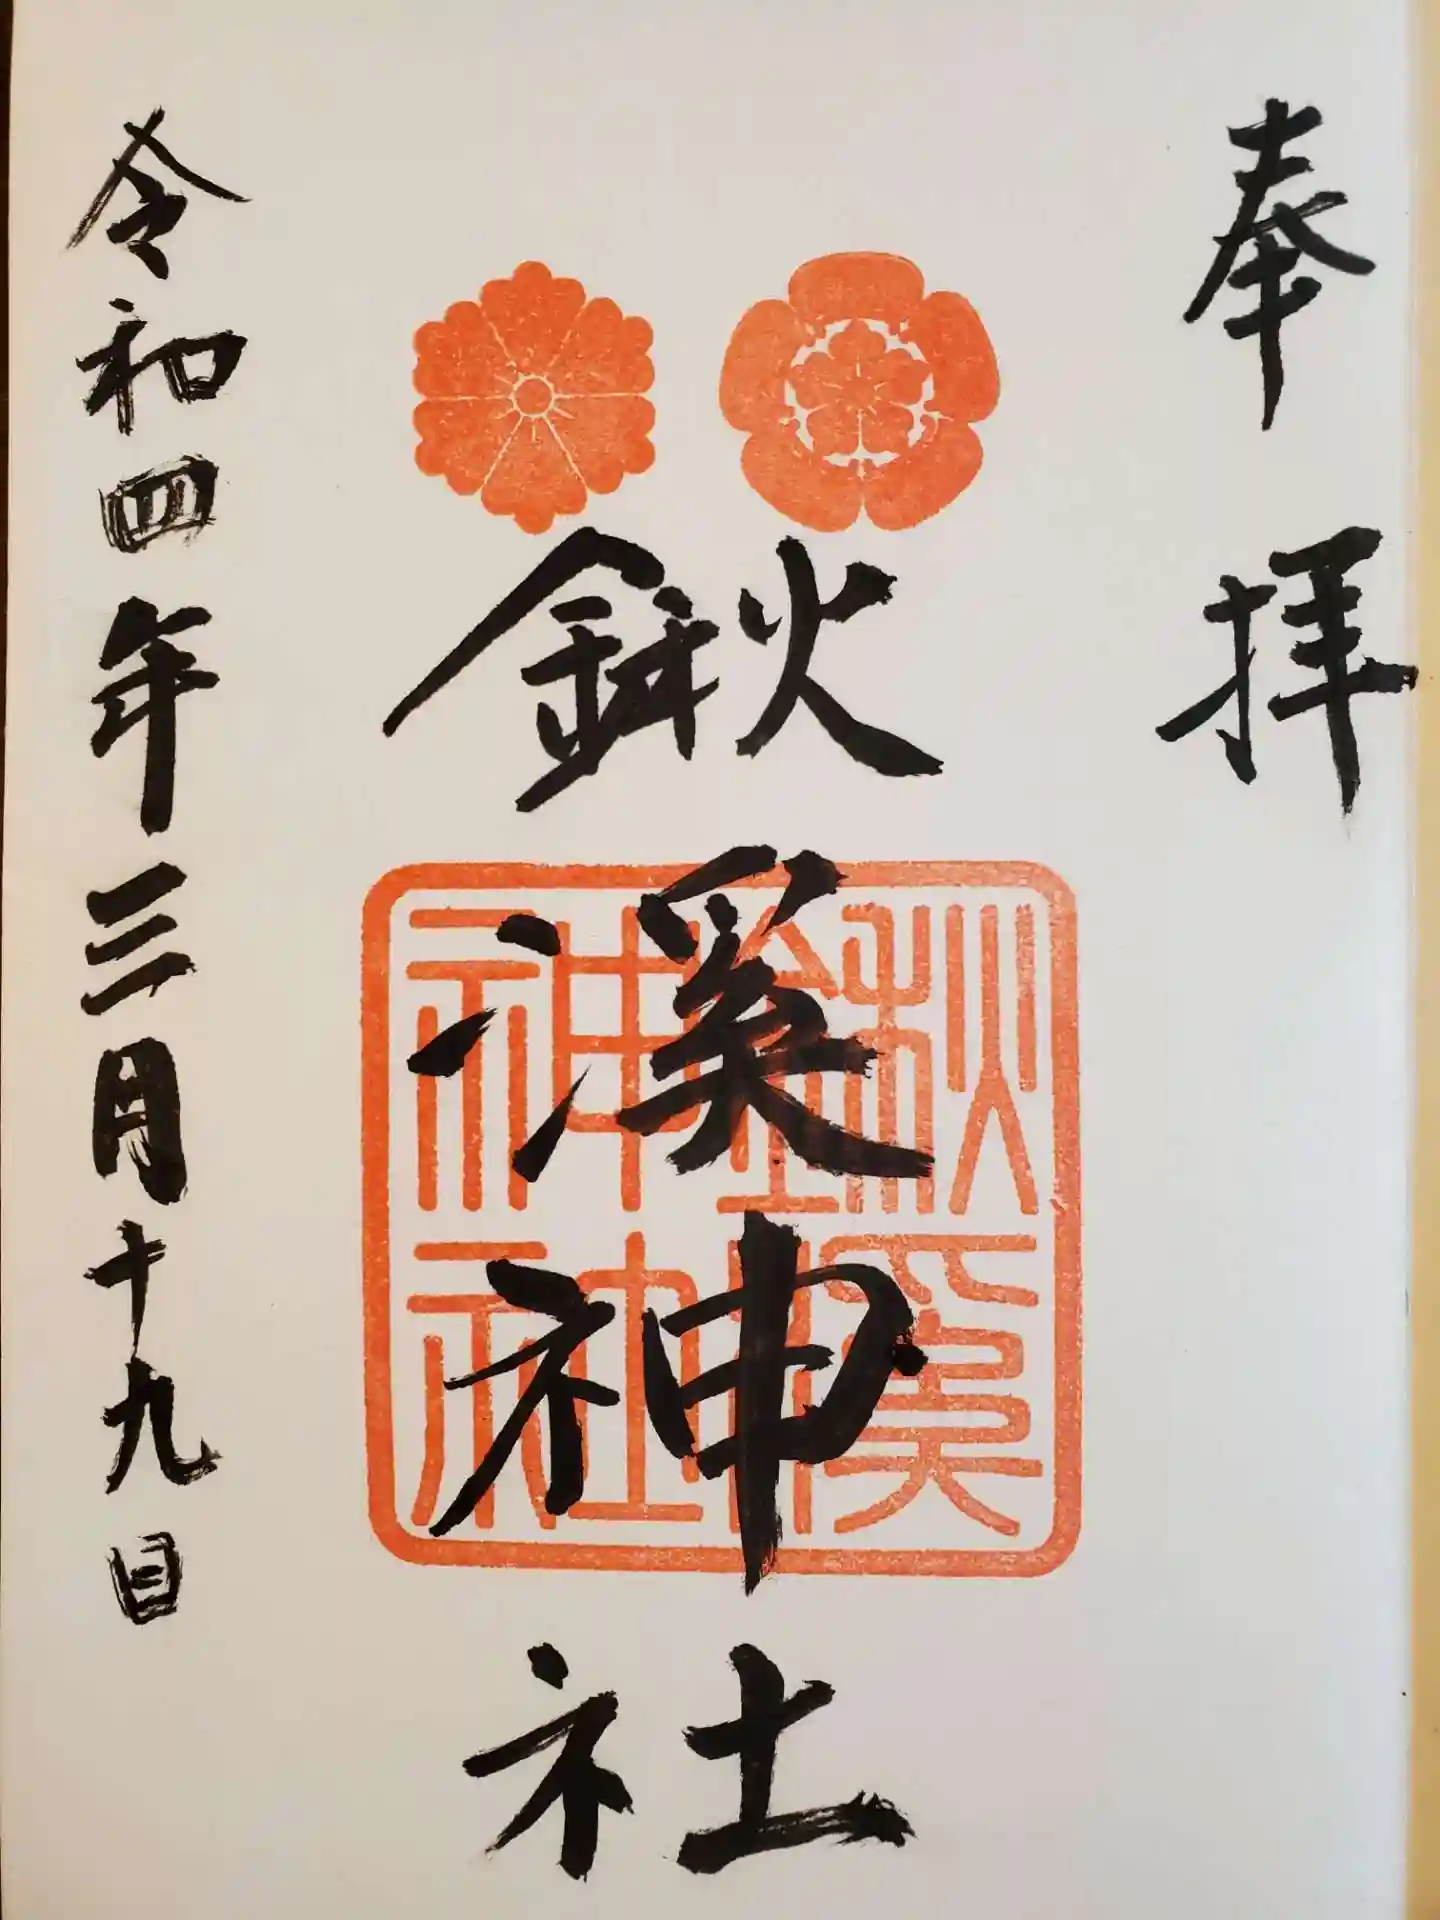 奉拝
鍬溪神社
鍬溪神社
令和四年三月十九日